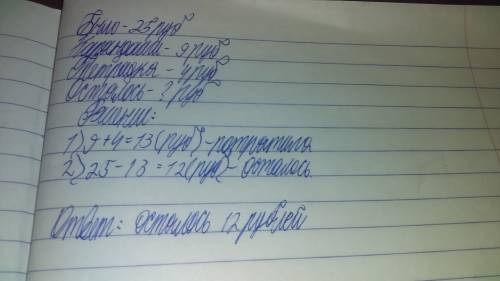 Было - 25 руб
Карандаши - 9 руб
Тетрадка - 4 руб
Осталось - ? руб
Решение:
1) 9 + 4 = 13 (руб) - потратила
2) 25 - 13 = 12 (руб) - осталось.
Ответ: осталось 12 рублей